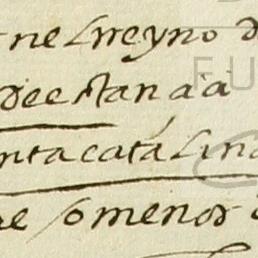 nel rreyno d
de estana a
nta catalina
re lo menos